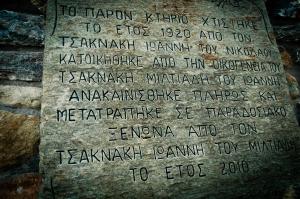 ΤΟ ΠΑΡΟΝ ΚΤΗΡΙΟ ΧΤΙΣΤΗΚΕ
ΤΟ ΕΤΟΣ 1920 ΑΠΟ ΤΟΝ
ΤΣΑΚΝΑΚΗ ΙΩΑΝΝΗ ΤΟΥ ΝΙΚΟΛΑΟΥ
ΚΑΤΟΙΚΗΘΗΚΕ ΑΠΟ ΤΗΝ ΟΙΚΟΓΕΝΕΙΑ ΤΟΥ
ΤΣΑΚΝΑΚΗ ΜΙΛΤΙΑΔΗ ΤΟΥ ΙΩΑΝΝΗ
ΑΝΑΚΑΙΝΙΣΘΗΚΕ ΠΛΗΡΩΣ ΚΑΙ
ΜΕΤΑΤΡΑΠΗΚΕ ΣΕ ΠΑΡΑΔΟΣΙΑΚΟ
ΞΕΝΩΝΑ ΑΠΟ ΤΟΝ
ΤΣΑΚΝΑΚΗ ΙΩΑΝΝΗ ΤΟΥ ΜΙΛΤΙΑΔΗ
ΤΟ ΕΤΟΣ 2010